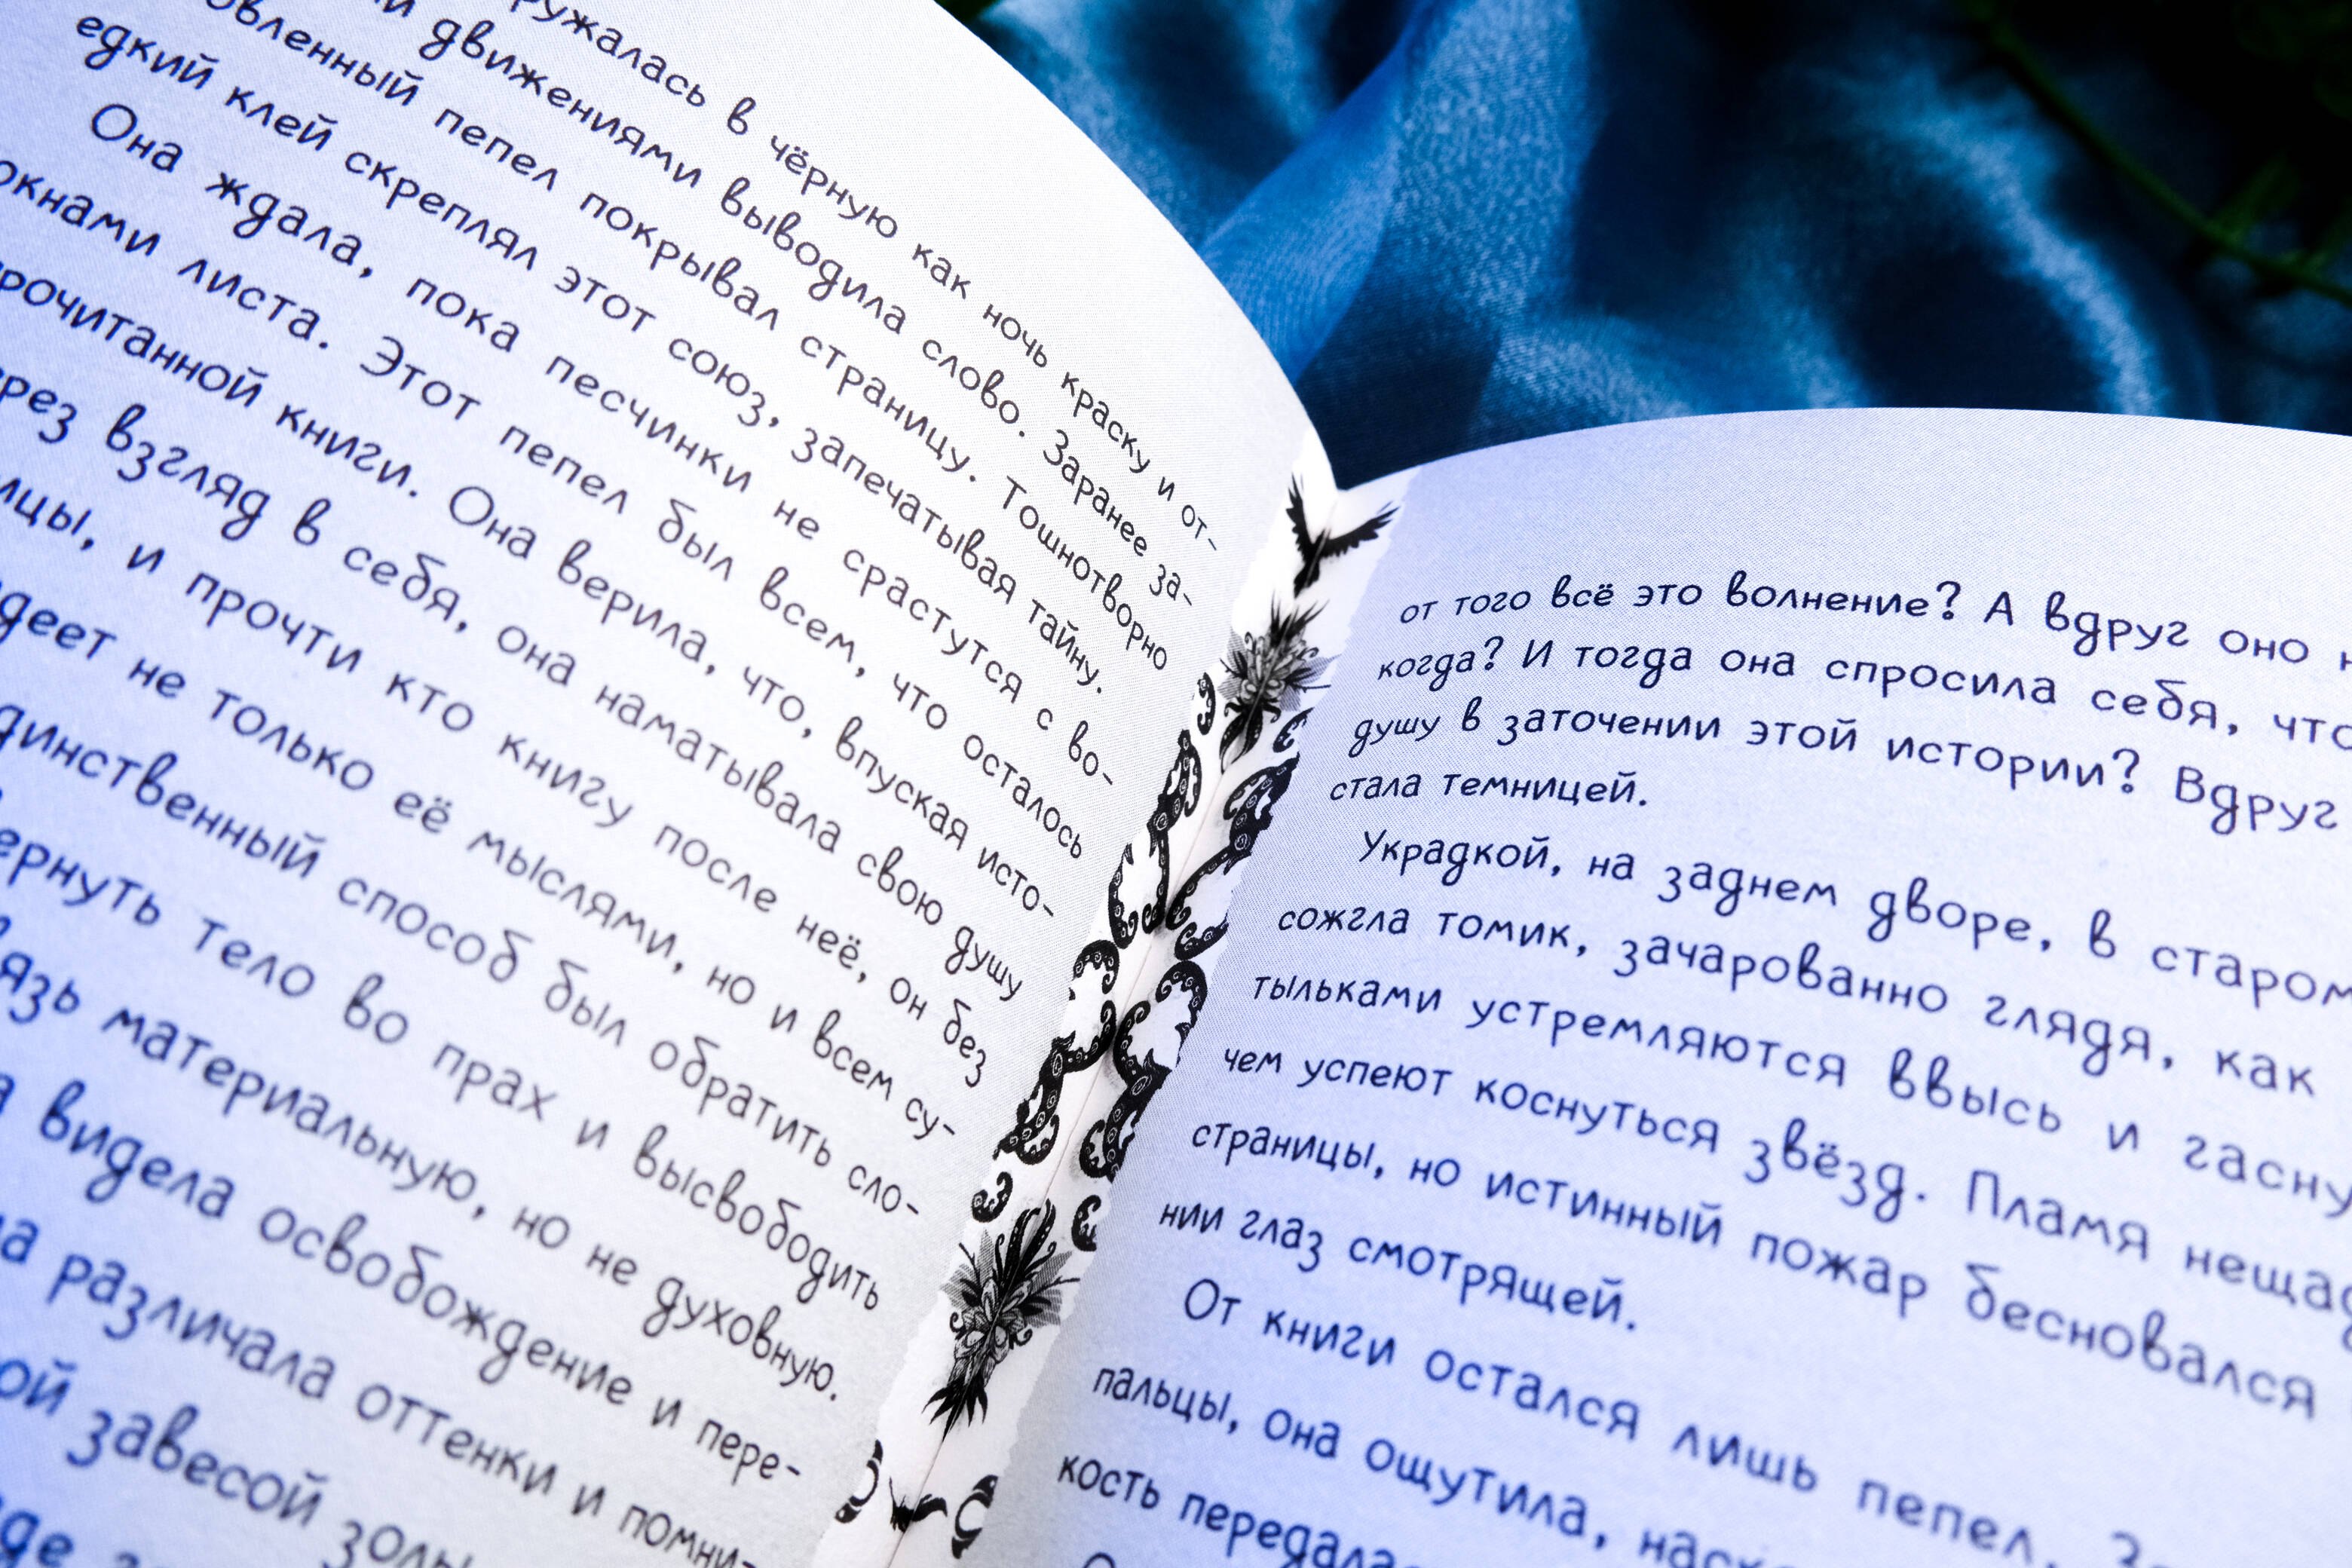 в чёрную как ночь краску и от-
движениями выводила слово. Заранее за-
пепел покрывал страницу. Тошнотворно
едкий клей скреплял этот союз, запечатывая тайну.
Она ждала, пока песчинки не срастутся с во-
листа. Этот пепел был всем, что осталось
книги. Она верила, что, впуская исто-
взгляд в себя, она наматывала свою душу
и прочти кто книгу после неё, он без
не только её мыслями, но и всем су-
способ был обратить сло-
тело во прах и высвободить
материальную, но не духовную.
видела освобождение и пере-
различала оттенки и помни-
завесой
от того всё это волнение? А вдруг оно
когда? И тогда она спросила себя, что
душу в заточении этой истории? Вдруг
стала темницей.
Украдкой, на заднем дворе, в старом
сожгла томик, зачарованно глядя, как
тыльками устремляются ввысь и
чем успеют коснуться звёзд. Пламя
страницы, но истинный пожар бесновался
нии глаз смотрящей.
От книги остался лишь пепел.
пальцы, она ощутила,
кость